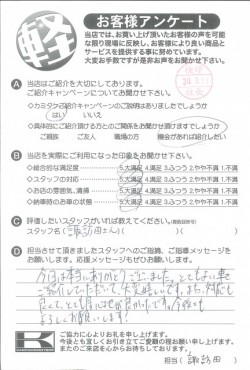 軽
お客様アンケート
当店では、お買い上げ頂いたお客様の声を可能
な限り現場に反映し、お客様により良い商品と
サービスを提供する事に努めています。
大変お手数ですが是非お声をお聞かせ下さい。
A 当店はご紹介を大切にしております。
ご紹介キャンペーンについてお聞かせ下さい。
◇カミタケ紹介キャンペーンのご説明はありましたでしょうか
はい いいえ
◇具体的にご紹介頂ける方とのご関係をお聞かせ頂けますでしょうか
ご親族 ご友人 職場の方 機会があれば紹介したい
B 当店を実際にご利用になった印象をお聞かせ下さい。
◇総合的な満足度 5.大満足 4.満足 3.ふつう 2.やや不満 1.不満
◇スタッフの対応 5.大満足 4.満足 3.ふつう 2.やや不満 1.不満
◇お店の雰囲気、清掃 5.大満足 4.満足 3.ふつう 2.やや不満 1.不満
◇納車時のお車の状態 5.大満足 4.満足 3.ふつう 2.やや不満 1.不満
C 評価したいスタッフがいれば教えてください。
スタッフ名( 諏訪田さん )
D 担当させて頂きましたスタッフへのご指摘、ご指導メッセージを
お願いします。応援メッセージもぜひお願いします。
今日は本当にありがとうございました。とてもよい車を
よろしくお願いします!
K
ご協力に心よりお礼を申し上げます。
今後とも宜しくお引き立てご愛顧の程お願い申し上げます。
またのご来店を心からお待ちしております。
担当( 諏訪田 )